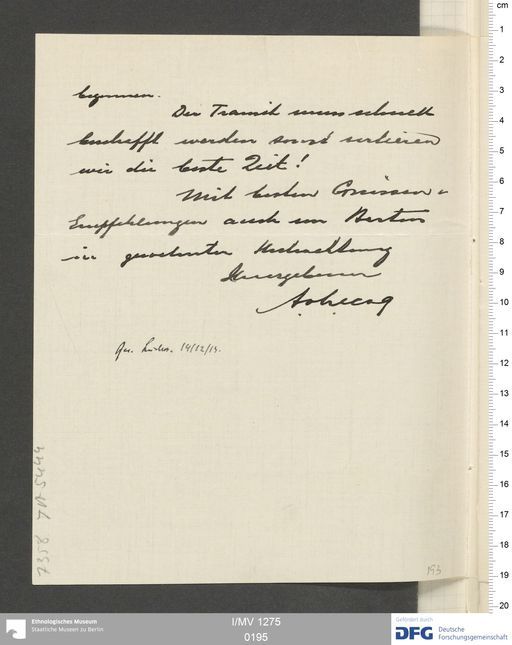 begonnen.
Der Transit muss schnell
beschafft werden sonst verlieren
wir die beste Zeit!
Mit besten Grüssen &
Empfehlungen auch an
in gewohnter Hochachtung
Ihr ergebener
14/12/13.
7358 7A5444
193
cm
1
2
3
4
5
6
7
8
9
10
11
12
13
14
15
16
17
18
19
20
Ethnologisches Museum
Staatliche Museen zu Berlin
I/MV 1275
0195
Gefördert durch
DFG Deutsche
Forschungsgemeinschaft